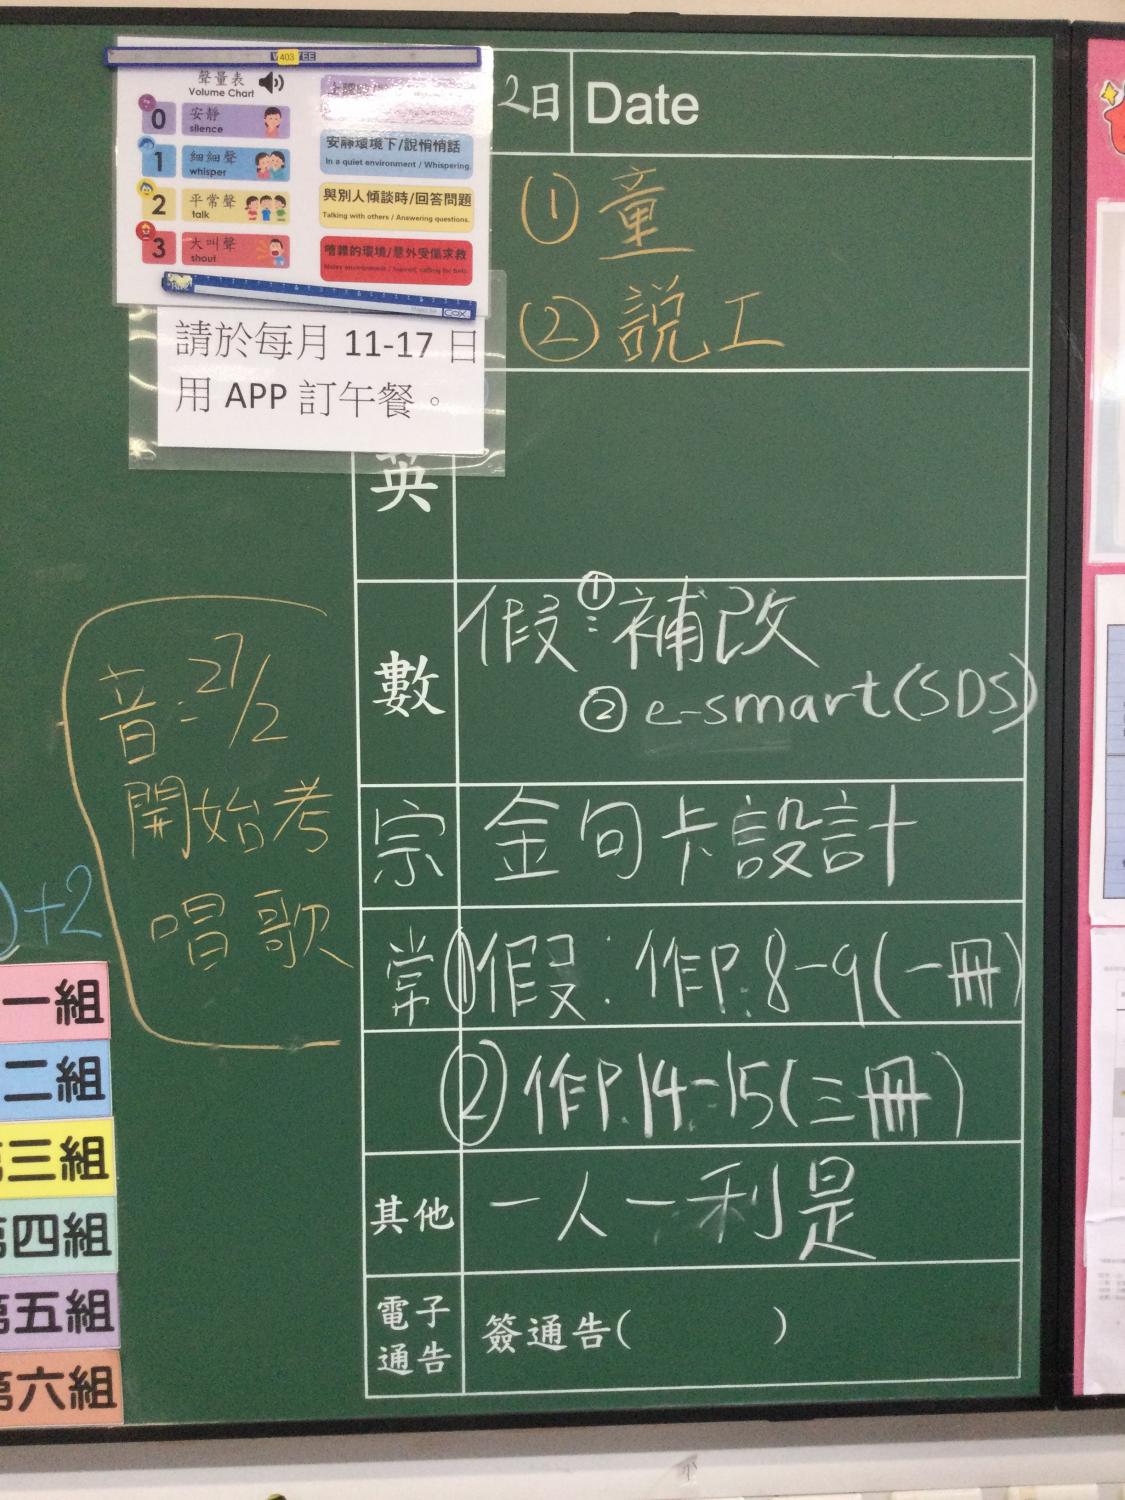 聲量表
Volume Chart
0 安靜 silence
1 細細聲 whisper
安靜環境下/說悄悄話
In a quiet environment / Whispering.
2 平常聲 talk
與別人傾談時/回答問題
Talking with others / Answering questions.
3 大叫聲 shout
嘈雜的環境/意外受傷求救
403
COX
請於每月 11-17 日
用 APP 訂午餐。
2日 Date
① 童
② 説工
英
數 假:①補改
② e-smart(SDS)
宗 金句卡設計
常 ①假:作P.8-9(一冊)
②作P.14-15(三冊)
其他 一人一利是
電子通告 簽通告( )
音:27/2
開始考
唱歌
+2
一組
二組
第三組
第四組
第五組
第六組